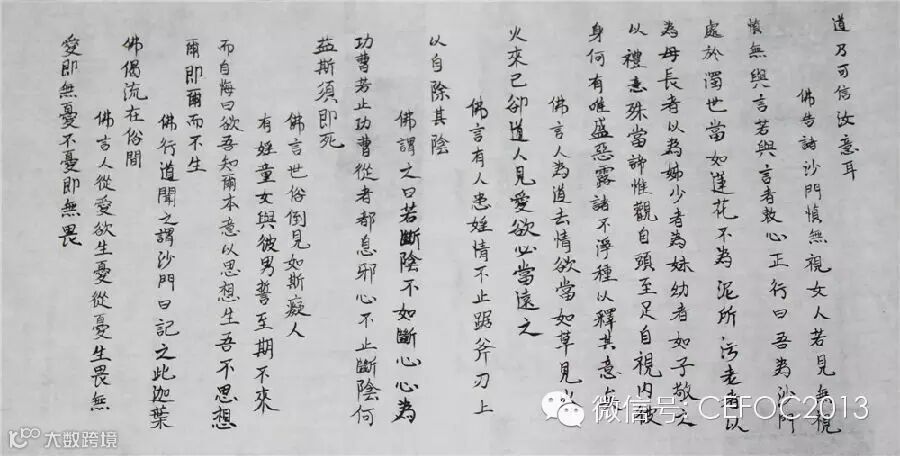 道乃可信汝意耳
佛告諸沙門慎無視女人若見無視
慎無與言若與言者敕心正行曰吾為沙門
處於濁世當如蓮花不為泥所汚老者以
為母長者以為姊少者為妹幼者如子敬之
以禮意殊當諦惟觀自頭至足自視內彼
身何有唯盛惡露諸不淨種以釋其意
佛言人為道去情欲當如草見
火來已卻道人見愛欲必當遠之
佛言有人患婬情不止踞斧刃上
以自除其陰
佛謂之曰若斷陰不如斷心心為
功曹若止功曹從者都息邪心不止斷陰何
益斯須即死
佛言世俗倒見如斯癡人
有婬童女與彼男誓至期不來
而自悔曰欲吾知爾本意以思想生吾不思想
爾即爾而不生
佛行道聞之謂沙門曰記之此迦葉
佛偈流在俗間
佛言人從愛欲生憂從憂生畏無
愛即無憂不憂即無畏
微信号: CEFOC2013
10100 大数跨境